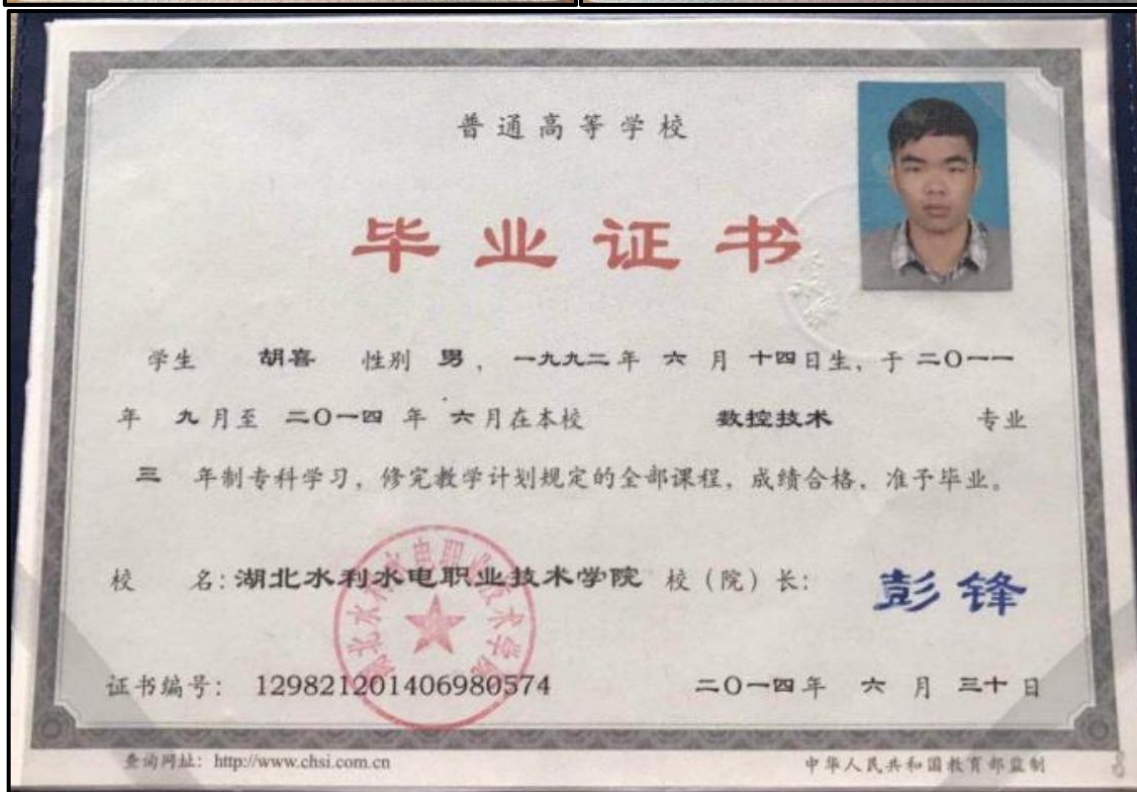 普通高等学校
毕业证书
学生 胡喜 性别 男, 一九九二年 六 月 十四日生, 于 二〇一一
年 九月至 二〇一四 年 六月在本校 数控技术 专业
三 年制专科学习, 修完教学计划规定的全部课程, 成绩合格, 准予毕业。
校 名: 湖北水利水电职业技术学院 校(院)长: 彭锋
湖北水利水电职业技术学院
证书编号: 129821201406980574 二〇一四年 六 月 三十 日
查询网址: http://www.chsi.com.cn 中华人民共和国教育部监制